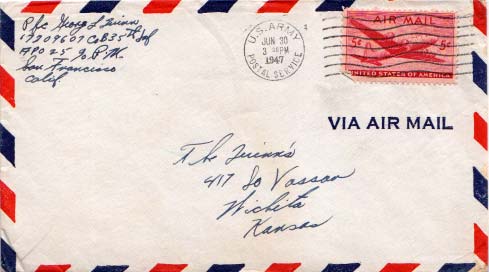 Pfc Georg L Quinn
17209607 Co B 35th Inf
APO 25 % P.M.
San Francisco
Calif.
U.S. ARMY
JUN 30
3 PM
1947
POSTAL SERVICE
AIR MAIL
5¢ 5¢
UNITED STATES OF AMERICA
VIA AIR MAIL
The Quinn's
417 So Vassar
Wichita
Kansas